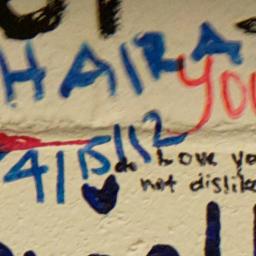 HAIRA
YOU
4/15/12
do Love yo
not dislike